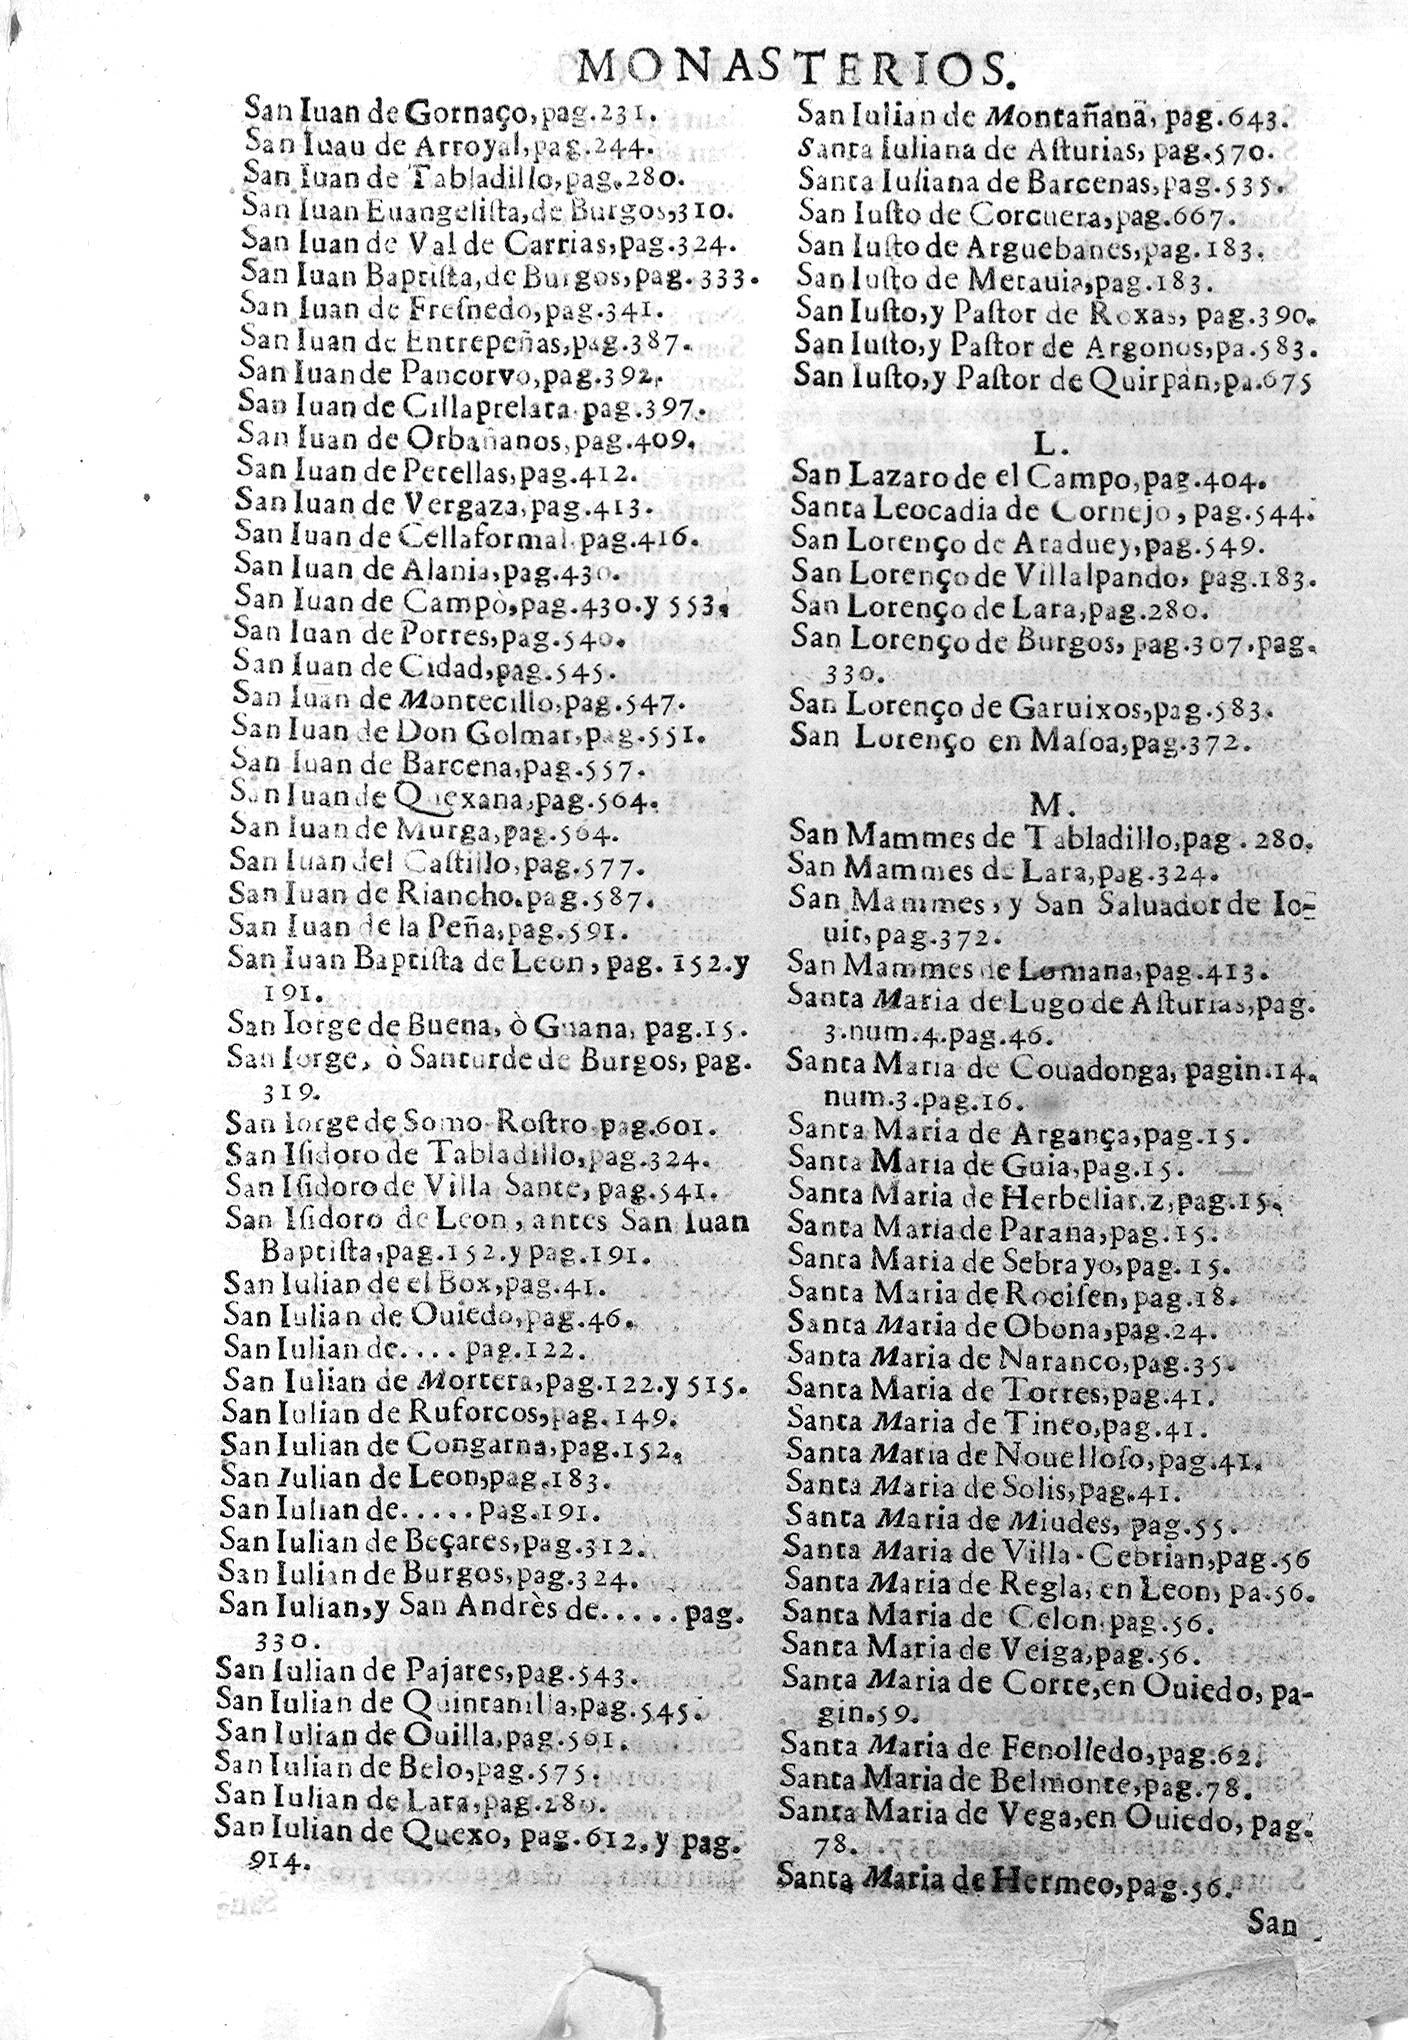 MONASTERIOS.
San Iuan de Gornaço, pag.231.
San Iuau de Arroyal, pag.244.
San Iuan de Tabladillo, pag.280.
San Iuan Euangeliſta, de Burgos, 310.
San Iuan de Val de Carrias, pag.324.
San Iuan Baptiſta, de Burgos, pag.333.
San Iuan de Freſnedo, pag.341.
San Iuan de Entrepeñas, pag.387.
San Iuan de Pancorvo, pag.392.
San Iuan de Cillaprelata pag.397.
San Iuan de Orbañanos, pag.409.
San Iuan de Petellas, pag.412.
San Iuan de Vergaza, pag.413.
San Iuan de Cellaformal pag.416.
San Iuan de Alania, pag.430.
San Iuan de Campò, pag.430.y 553.
San Iuan de Porres, pag.540.
San Iuan de Cidad, pag.545.
San Iuan de Montecillo, pag.547.
San Iuan de Don Golmar, pag.551.
San Iuan de Barcena, pag.557.
San Iuan de Quexana, pag.564.
San Iuan de Murga, pag.564.
San Iuan del Caſtillo, pag.577.
San Iuan de Riancho. pag.587.
San Iuan de la Peña, pag.591.
San Iuan Baptiſta de Leon, pag. 152.y
191.
San Iorge de Buena, ò Guana, pag.15.
San Iorge, ò Santurde de Burgos, pag.
319.
San Iorge de Somo-Roſtro pag.601.
San Iſidoro de Tabladillo, pag.324.
San Iſidoro de Villa Sante, pag.541.
San Iſidoro de Leon, antes San Iuan
Baptiſta, pag.152.y pag.191.
San Iulian de el Box, pag.41.
San Iulian de Ouiedo, pag.46.
San Iulian de.... pag.122.
San Iulian de Mortera, pag.122.y 515.
San Iulian de Ruforcos, pag.149.
San Iulian de Congarna, pag.152.
San Iulian de Leon, pag.183.
San Iulian de..... pag.191.
San Iulian de Beçares, pag.312.
San Iulian de Burgos, pag.324.
San Iulian, y San Andrès de..... pag.
330.
San Iulian de Pajares, pag.543.
San Iulian de Quintanilla, pag.545.
San Iulian de Ouilla, pag.561.
San Iulian de Belo, pag.575.
San Iulian de Lara, pag.280.
San Iulian de Quexo, pag.612.y pag.
914.
San Iulian de Montañanà, pag.643.
Santa Iuliana de Aſturias, pag.570.
Santa Iuliana de Barcenas, pag.535.
San Iuſto de Corcuera, pag.667.
San Iuſto de Arguebanes, pag.183.
San Iuſto de Metauia, pag.183.
San Iuſto, y Paſtor de Roxas, pag.390.
San Iuſto, y Paſtor de Argonos, pa.583.
San Iuſto, y Paſtor de Quirpàn, pa.675
L.
San Lazaro de el Campo, pag.404.
Santa Leocadia de Cornejo, pag.544.
San Lorenço de Araduey, pag.549.
San Lorenço de Villalpando, pag.183.
San Lorenço de Lara, pag.280.
San Lorenço de Burgos, pag.307.pag.
330.
San Lorenço de Garuixos, pag.583.
San Lorenço en Maſoa, pag.372.
M.
San Mammes de Tabladillo, pag.280.
San Mammes de Lara, pag.324.
San Mammes, y San Saluador de Io-
uit, pag.372.
San Mammes de Lomana, pag.413.
Santa Maria de Lugo de Aſturias, pag.
3.num.4.pag.46.
Santa Maria de Couadonga, pagin.14.
num.3.pag.16.
Santa Maria de Argança, pag.15.
Santa Maria de Guia, pag.15.
Santa Maria de Herbeliar.z, pag.15.
Santa Maria de Parana, pag.15.
Santa Maria de Sebrayo, pag.15.
Santa Maria de Rociſen, pag.18.
Santa Maria de Obona, pag.24.
Santa Maria de Naranco, pag.35.
Santa Maria de Torres, pag.41.
Santa Maria de Tineo, pag.41.
Santa Maria de Nouelloſo, pag.41.
Santa Maria de Solis, pag.41.
Santa Maria de Miudes, pag.55.
Santa Maria de Villa-Cebrian, pag.56
Santa Maria de Regla, en Leon, pa.56.
Santa Maria de Celon. pag.56.
Santa Maria de Veiga, pag.56.
Santa Maria de Corte, en Ouiedo, pa-
gin.59.
Santa Maria de Fenolledo, pag.62.
Santa Maria de Belmonte, pag.78.
Santa Maria de Vega, en Ouiedo, pag.
78.
Santa Maria de Hermeo, pag.56.
San